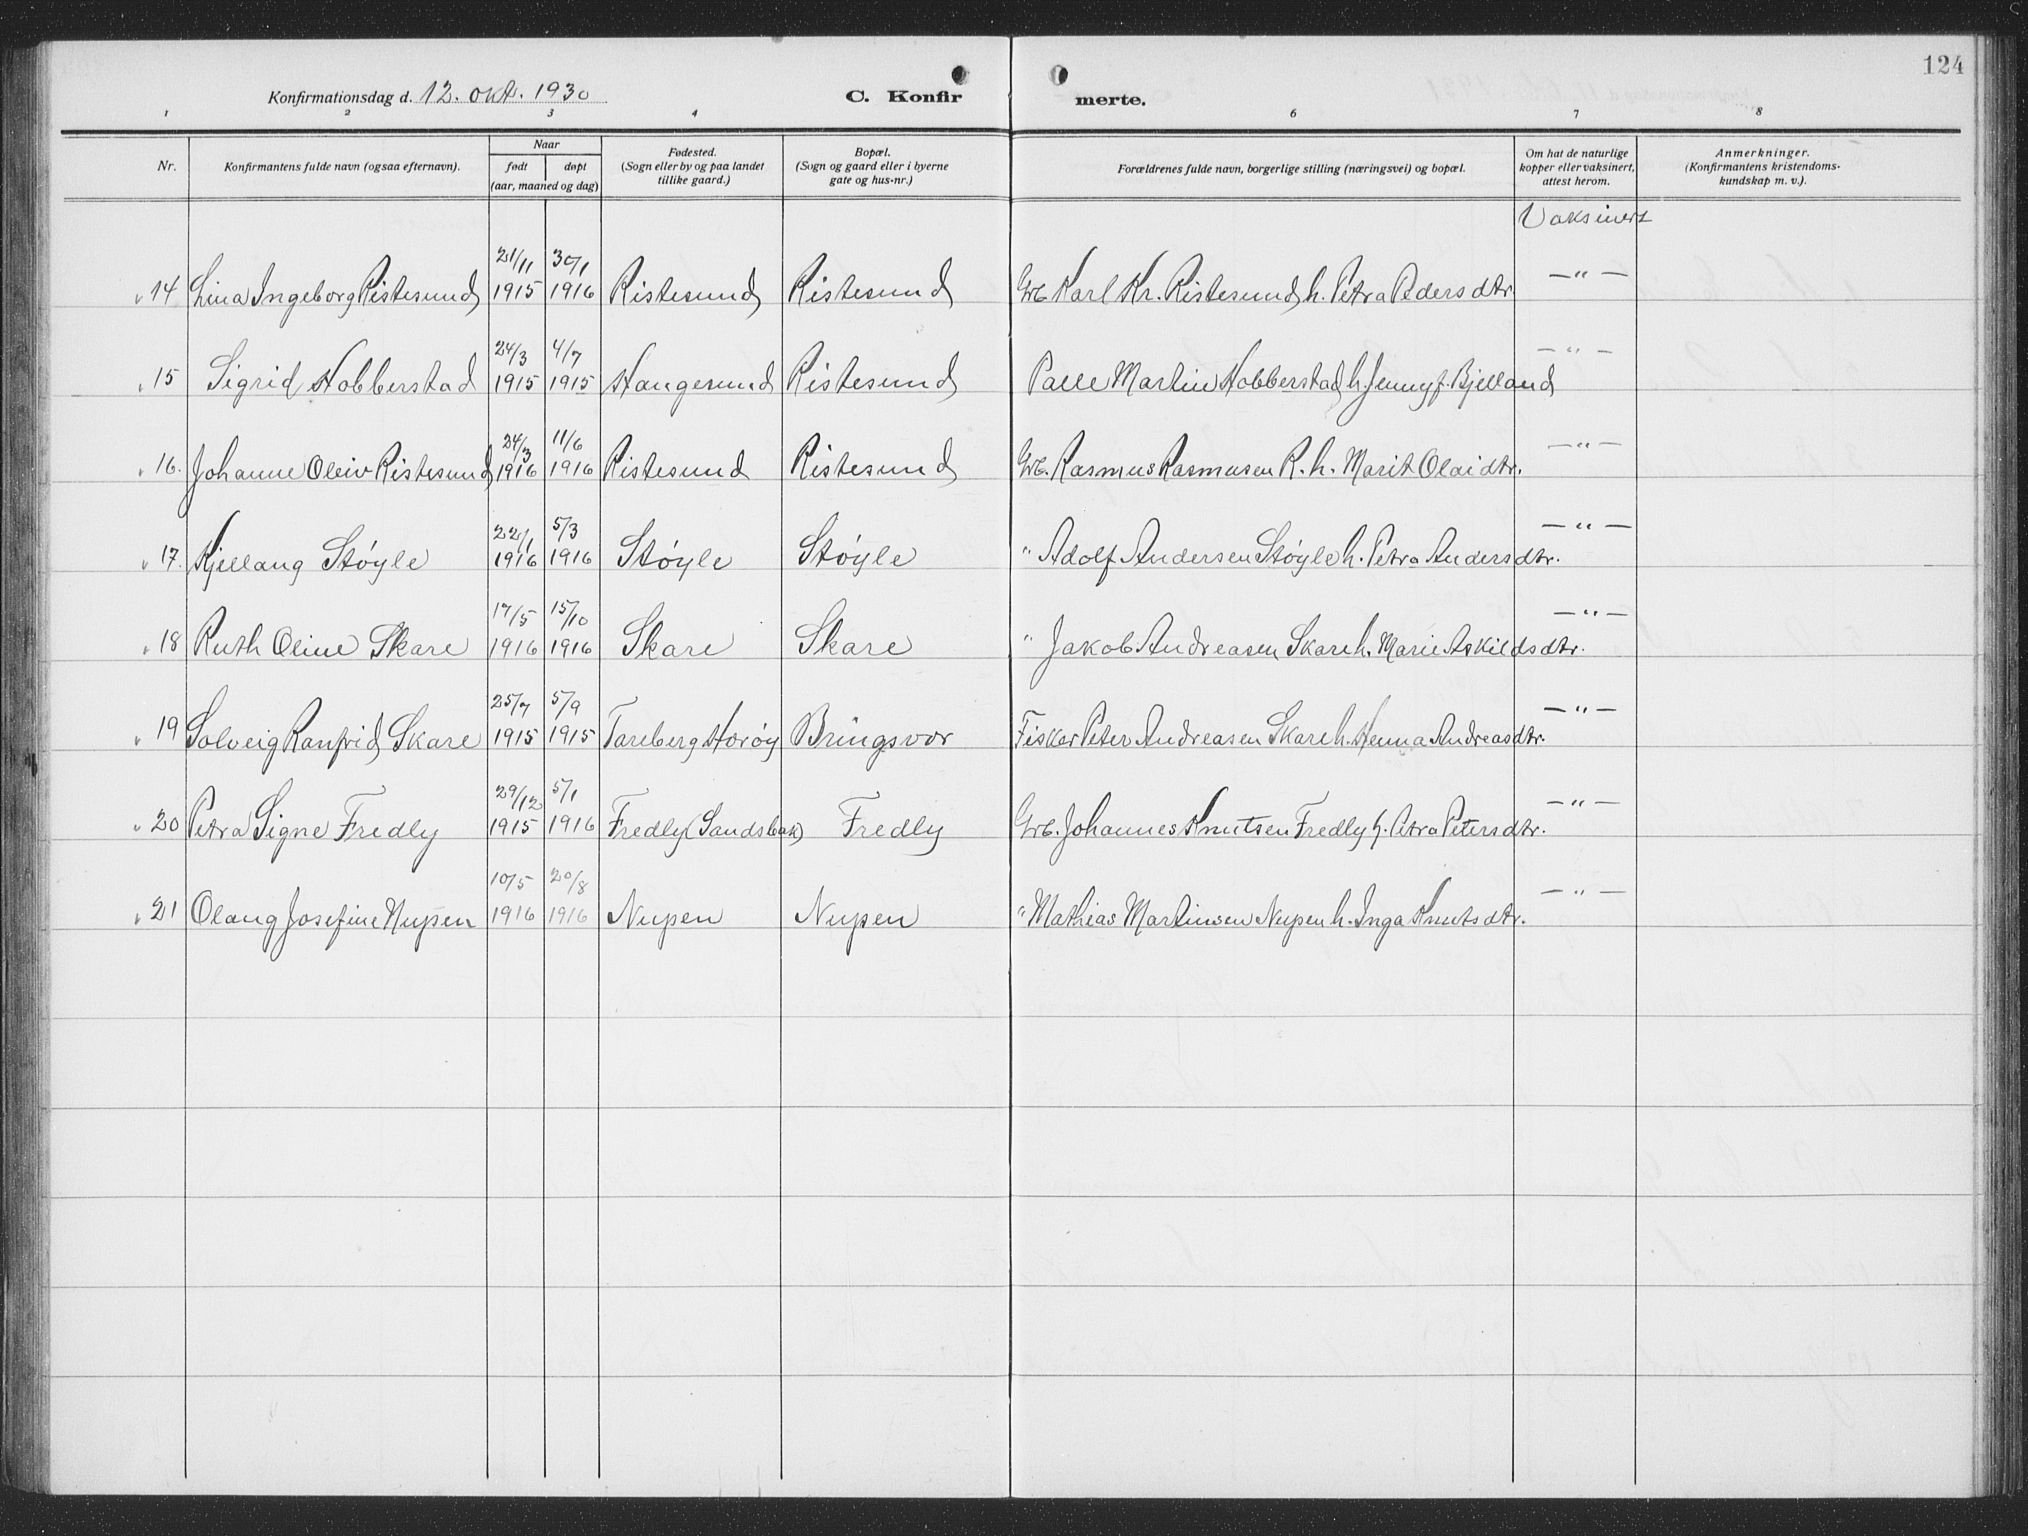 124
Konfirmationsdag d. 12. okt. 1930 C. Konfir merte.
1 2 3 4 6 7 8
Nr. Konfirmantens fulde navn (ogsaa efternavn). Naar født døpt (aar, maaned og dag) Fødested. (Sogn eller by og paa landet tillike gaard.) Bopæl. (Sogn og gaard eller i byerne gate og hus-nr.) Forældrenes fulde navn, borgerlige stilling (næringsvei) og bopæl. Om hat de naturlige kopper eller vaksinert, attest herom. Anmerkninger. (Konfirmantens kristendoms-kundskap m. v.).
Vaksinert
21/11 30/1
14 Lina Ingeborg Ristesund 1915 1916 Ristesund Ristesund Grb. Karl Kr. Ristesund h. Petra Pedersdtr. —"—
24/3 4/7
15 Sigrid Hobberstad 1915 1915 Haugesund Ristesund Palle Martin Hobberstad h. Jenny f. Bjelland —"—
24/3 11/6
16. Johanne Oleiv Ristesund 1916 1916 Ristesund Ristesund Grb. Rasmus Rasmusen R. h. Marit Olaidtr. —"—
22/1 5/3
17. Kjellaug Støyle 1916 1916 Støyle Støyle " Adolf Andersen Støyle h. Petra Andersdtr. —"—
17/5 15/10
18 Ruth Oline Skare 1916 1916 Skare Skare " Jakob Andreasen Skare h. Marie Askildsdtr. —"—
25/7 5/9
19 Solveig Ranfrid Skare 1915 1915 Tareberg Horøy Bringsvor Fisker Peter Andreasen Skare h. Henna Andreasdtr. —"—
29/12 5/1
20 Petra Signe Fredly 1915 1916 Fredly (Sandsbak) Fredly Grb. Johannes Knutsen Fredly h. Petra Petersdtr. —"—
10/5 20/8
21 Olaug Josefine Nupen 1916 1916 Nupen Nupen " Mathias Martinsen Nupen h. Inga Knutsdtr. —"—